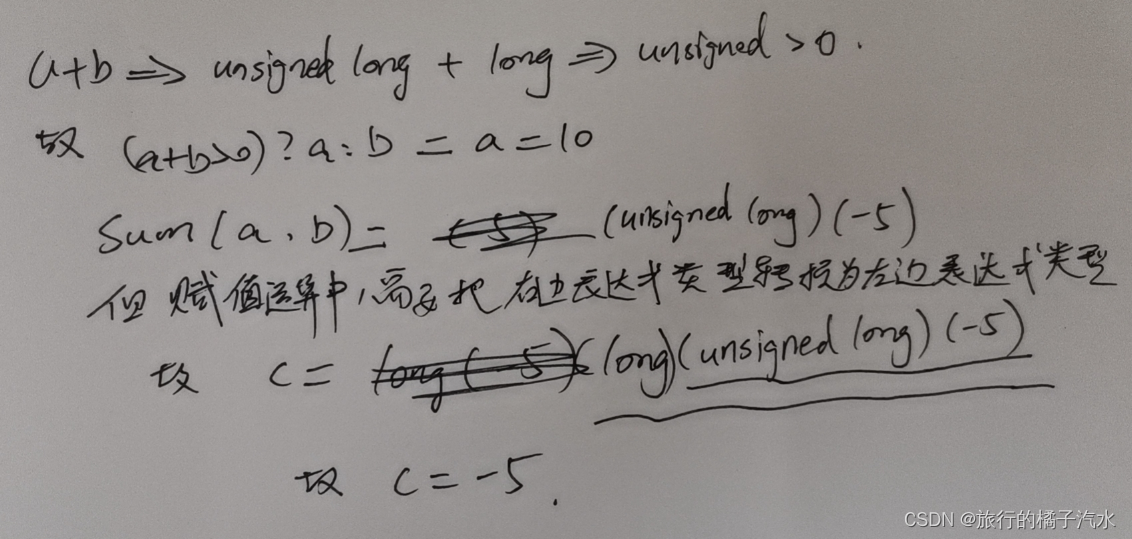 a+b => unsigned long + long => unsigned > 0.
故 (a+b>0)? a:b = a = 10
Sum(a, b) = (-5) (unsigned long)(-5)
但赋值运算中,需要把右边表达式类型转换为左边表达式类型
故 c = long(-5)( (long)(unsigned long)(-5)
故 c = -5.
CSDN @旅行的橘子汽水